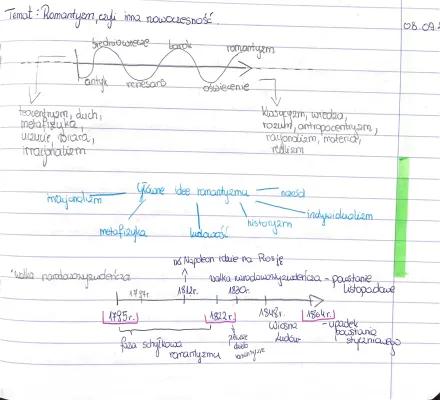 Temat: Romantyzm, czyli inna nowoczesność.
08.09.
średniowiecze barok romantyzm
antyk renesans oświecenie
teocentryzm, duch,
metafizyka,
uczucie, wiara,
irracjonalizm
klasycyzm, wiedza,
rozum, antropocentryzm,
racjonalizm, materia,
realizm
Główne idee romantyzmu
irracjonalizm
naród
indywidualizm
historyzm
ludowość
metafizyka
Napoleon idzie na Rosję
walka narodowowyzwoleńcza
walka narodowowyzwoleńcza - powstanie
listopadowe
1812r. 1830r.
1795r. 1822r. 1848r. 1864r. - upadek
powstania
styczniowego
Wiosna
Ludów
faza schyłkowa
romantyzmu